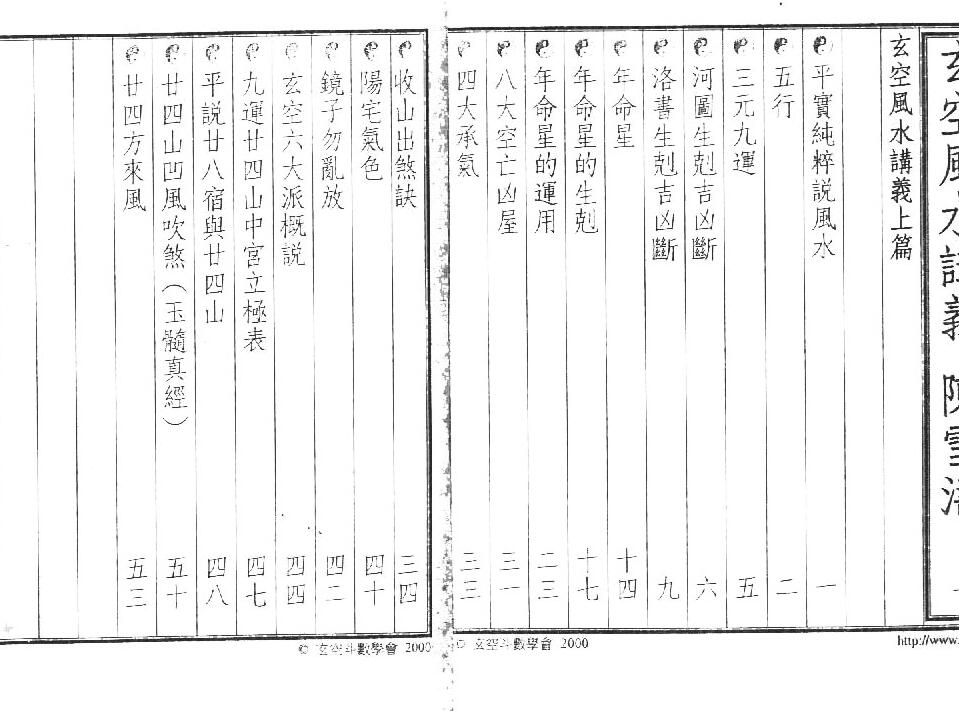 玄空風水講義 陳雪
玄空風水講義上篇
平實純粹説風水 一
五行 二
三元九運 五
河圖生剋吉凶斷 六
洛書生剋吉凶斷 九
年命星 十四
年命星的生剋 十七
年命星的運用 二三
八大空亡凶屋 三一
四大承氣 三三
收山出煞訣 三四
陽宅氣色 四十
鏡子勿亂放 四二
玄空六大派概説 四四
九運廿四山中宮立極表 四七
平説廿八宿與廿四山 四八
廿四山凹風吹煞（玉髓真經） 五十
廿四方來風 五三
© 玄空斗數學會 2000
© 玄空斗數學會 2000
http://www.